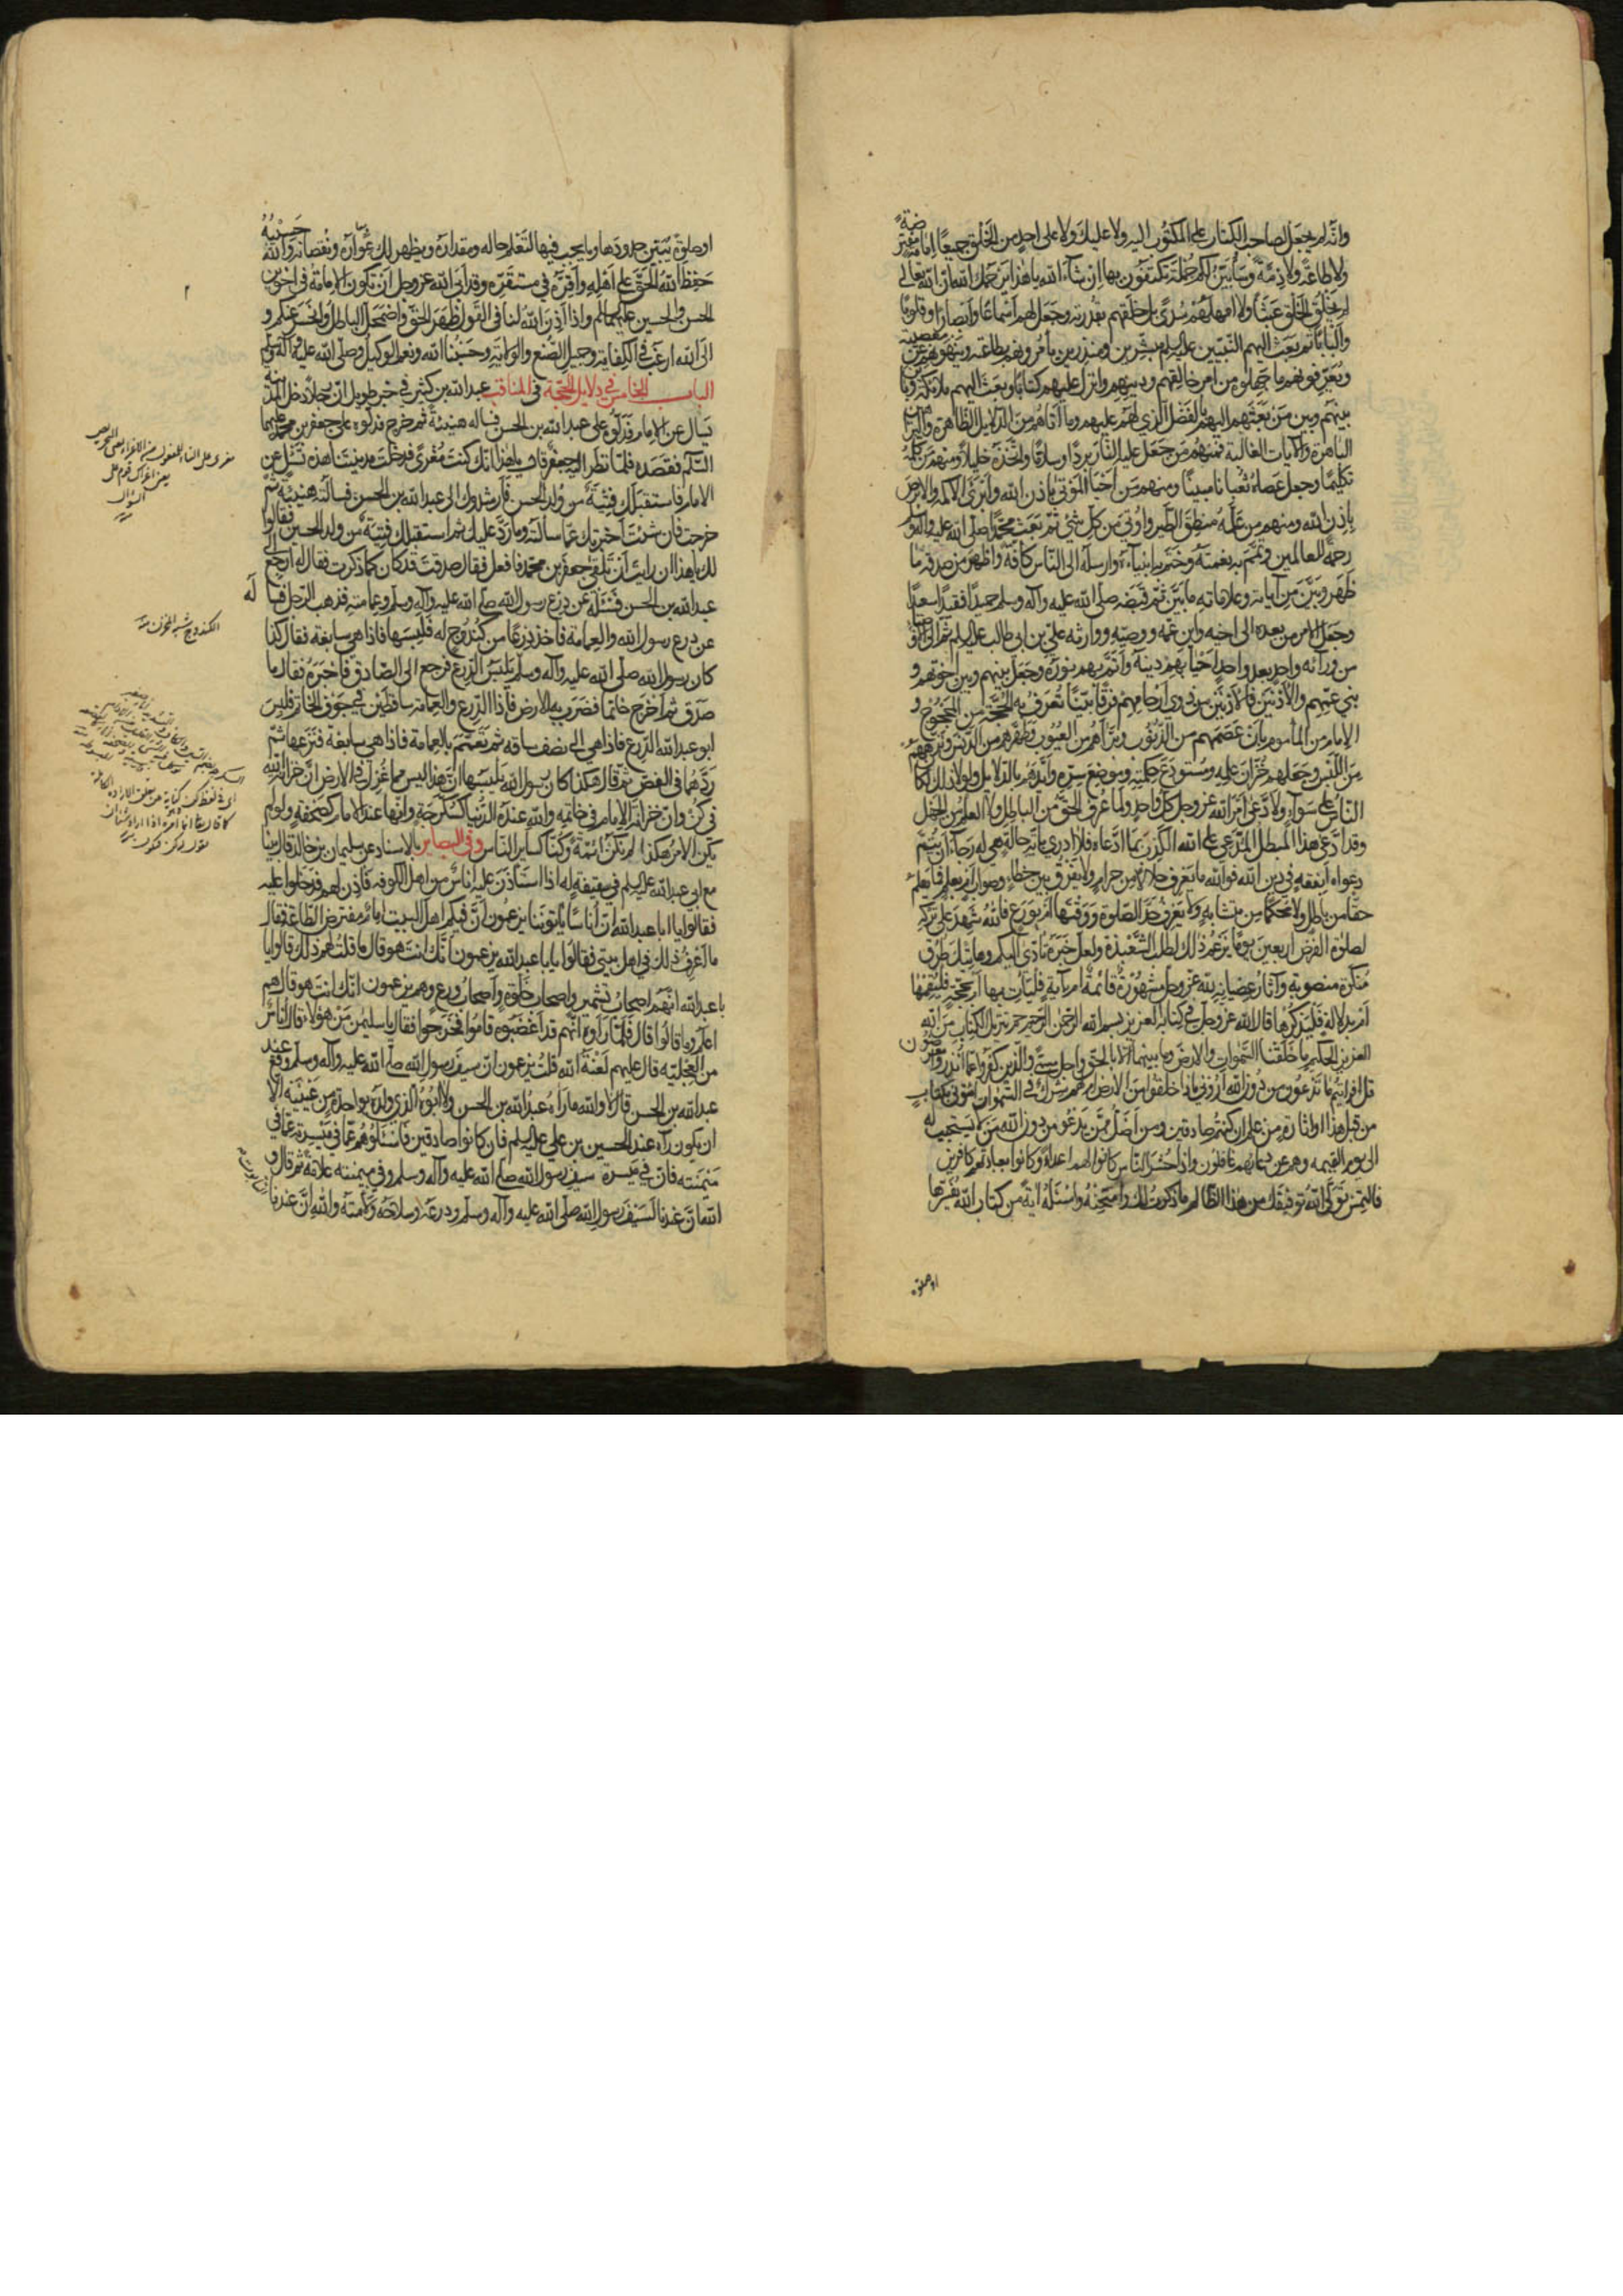 وانّه لم يجعل لصاحب الكتاب على المكتوب اليه ولا عليك ولا على احدٍ من الخلق جميعًا امامة مفترضة
ولا طاعةً ولا ذمّةً وسأبيّن لكم جملة تكتفون بها ان شاء الله يا هذا يرحمك الله ان الله تعالى
لم يخلق الخلق عبثًا ولا امهلهم سُدًى بل خلقهم بقدرته وجعل لهم اسماعًا وابصارًا وقلوبًا
والبابًا ثم بعث اليهم النبيين عليهم السلم مبشرين ومنذرين يأمرونهم بطاعته وينهونهم عن معصيته
ويعرّفونهم ما جهلوه من امر خالقهم ودينهم وانزل عليهم كتابًا وبعث اليهم ملائكة
بينهم وبين من بعثهم اليهم بالفضل الذي لهم عليهم وما آتاهم من الدلايل الظاهرة والبراهين
الباهرة والآيات الغالبة فمنهم من جعل عليه النار بردًا وسلامًا واتّخذه خليلًا ومنهم من كلّمه
تكليمًا وجعل عصاه ثعبانًا مبينًا ومنهم من احيا الموتى باذن الله وابرئ الاكمه والابرص
باذن الله ومنهم من علّمه منطق الطير واوتي من كل شئ ثم بعث محمدًا صلى الله عليه وآله
رحمة للعالمين وتمّم به نعمته وختم به انبياءه وارسله الى الناس كافة واظهر من صدقه ما
ظهر وبيّن من آياته وعلاماته ما بيّن ثم قبضه صلى الله عليه وآله وسلم حميدًا فقيدًا سعيدًا
وجعل الامر من بعده الى اخيه وابن عمه ووصيه ووارثه علي بن ابي طالب عليه السلم ثم الى الاوصياء
من ورائه واحد بعد واحد احيا بهم دينه واتمّ بهم نوره وجعل بينهم وبين اخوتهم و
بني عمهم والادنين فالادنين من ذوي ارحامهم فرقًا بيّنًا تعرف به الحجة من المحجوج و
الامام من المأموم بان عصمهم من الذنوب وبرأهم من العيوب وطهّرهم من الدنس ونزههم
من اللبس وجعلهم خزان علمه ومستودع حكمته وموضع سرّه وايّدهم بالدلايل ولولا ذلك لكان
الناس على سواء ولادّعى امر الله عز وجل كل واحد ولما عرف الحق من الباطل ولا العلم من الجهل
وقد ادّعى هذا المبطل المدّعي على الله الكذب بما ادّعاه فلا ادري باية حالة هي له رجاء ان يتمّ
دعواه أبفقه في دين الله فوالله ما يعرف حلالا من حرام ولا يفرق بين خطاء وصواب ام بعلم فما يعلم
حقًا من باطل ولا محكمًا من متشابه ولا يعرف حدّ الصلوة ووقتها ام بورع فالله شهيد على تركه
لصلوة الفرض اربعين يومًا يزعم ذلك لطلب الشعبذة ولعل خبره تأدّى اليكم وهاتيك ظروف
مسكره منصوبة وآثار عصيانه لله عز وجل مشهورة قائمة ام بآية فليأت بها ام بحجة فليقمها
ام بدلالة فليذكرها قال الله عز وجل في كتابه العزيز بسم الله الرحمن الرحيم حم تنزيل الكتاب من الله
العزيز الحكيم ما خلقنا السموات والارض وما بينهما الا بالحق واجل مسمى والذين كفروا عما انذروا معرضون
قل ارأيتم ما تدعون من دون الله اروني ماذا خلقوا من الارض ام لهم شرك في السموات ائتوني بكتاب
من قبل هذا او اثارة من علم ان كنتم صادقين ومن اضل ممن يدعو من دون الله من لا يستجيب له
الى يوم القيمه وهم عن دعائهم غافلون واذا حشر الناس كانوا لهم اعداءً وكانوا بعبادتهم كافرين
فالتمس تولّى الله توفيقك من هذا الظالم ما ذكرت لك وامتحنه واسئله آية من كتاب الله يفسرها
او صلوة
او صلوة يبيّن حدودها وما يجب فيها لتعلم حاله ومقداره ويظهر لك عواره ونقصانه والله حسيبه
حفظ الله الحق على اهله واقرّه في مستقرّه وقد ابى الله عز وجل ان تكون الامامة في اخوين بعد
الحسن والحسين عليهما السلم واذا اذن الله لنا في القول ظهر الحق واضمحل الباطل وانحسر عنكم و
الى الله ارغب في الكفاية وجميل الصنع والولاية وحسبنا الله ونعم الوكيل وصلى الله عليه وآله
الباب الخامس في دلايل الحجة في المناقب عبد الله بن كثير في خبر طويل ان رجلًا دخل المدينة
يسأل عن الامام فدلّوه على عبد الله بن الحسن فسأله هنيئة ثم خرج فدلّوه على جعفر بن محمد عليهما
السلم فقصده فلمّا نظر اليه جعفر قال يا هذا انك كنت مغرًى فدخلت مدينتنا هذه تسئل عن
الامام فاستقبلك فتية من ولد الحسن فارشدوك الى عبد الله بن الحسن فسألته هنيئة ثم
خرجت فان شئت اخبرتك عما سألته وما ردّ عليك ثم استقبلك فتية من ولد الحسين فقالوا
لك يا هذا ان رايت ان تلقى جعفر بن محمد فافعل فقال صدقت قد كان كما ذكرت فقال له ارجع الى
عبد الله بن الحسن فسئله عن درع رسول الله صلى الله عليه وآله وسلم وعمامته فذهب الرجل فسأله
عن درع رسول الله والعمامة فاخذ درعًا من كندوج له فلبسها فاذا هي سابغة فقال كذا
كان رسول الله صلى الله عليه وآله وسلم يلبس الدرع فرجع الى الصادق فاخبره فقال ما
صدق ثم اخرج خاتمًا فضرب به الارض فاذا الدرع والعمامة ساقطين في جوف الخاتم فلبس
ابو عبد الله الدرع فاذا هي الى نصف ساقه ثم تعمّم بالعمامة فاذا هي سابغة فنزعها ثم
ردّهما في الفص ثم قال هكذا كان رسول الله يلبسها ان هذا ليس مما غزل في الارض ان خزانة الله
في كن وان خزانة الامام في خاتمه والله عنده الدنيا كسكرجة وانها عند الامام كصحفة ولو لم
يكن الامر هكذا لم نكن ائمة وكنّا كساير الناس وفي البصاير بالاسناد عن سليمان بن خالد قال بينا
مع ابي عبد الله عليه السلم في سقيفة له اذا استأذن عليه اناس من اهل الكوفه فاذن لهم فدخلوا عليه
فقالوا يا ابا عبد الله ان اناسًا يأتوننا يزعمون ان فيكم اهل البيت امام مفترض الطاعة فقال
ما اعرف ذلك في اهل بيتي فقالوا يا با عبد الله يزعمون انّك انت هو قال ما قلت لهم ذلك قالوا يا
با عبد الله انهم اصحاب تشمير واصحاب خلوة واصحاب ورع وهم يزعمون انك انت هو قال هم
اعلم وما قالوا قال فلمّا راوه انهم قد اغضبوه قاموا فخرجوا فقال يا سليمن من هؤلاء قال اناس
من العجليه قال عليهم لعنة الله قلت يزعمون ان سيف رسول الله صلى الله عليه وآله وسلم وقع عند
عبد الله بن الحسن قال لا والله ما رآه عبد الله بن الحسن ولا ابوه الذي ولده بواحدة من عينيه الا
ان يكون رآه عند الحسين بن علي عليه السلم فان كانوا صادقين فاسئلوهم عما في ميسرته وعما في
ميمنته فان في ميسرة سيف رسول الله صلى الله عليه وآله وسلم وفي ميمنته علامة ثم قال و
الله ان عندنا لسيف رسول الله صلى الله عليه وآله وسلم ودرعه وسلاحه ولأمته والله ان عندنا
الكندوج شبه المخزن منه